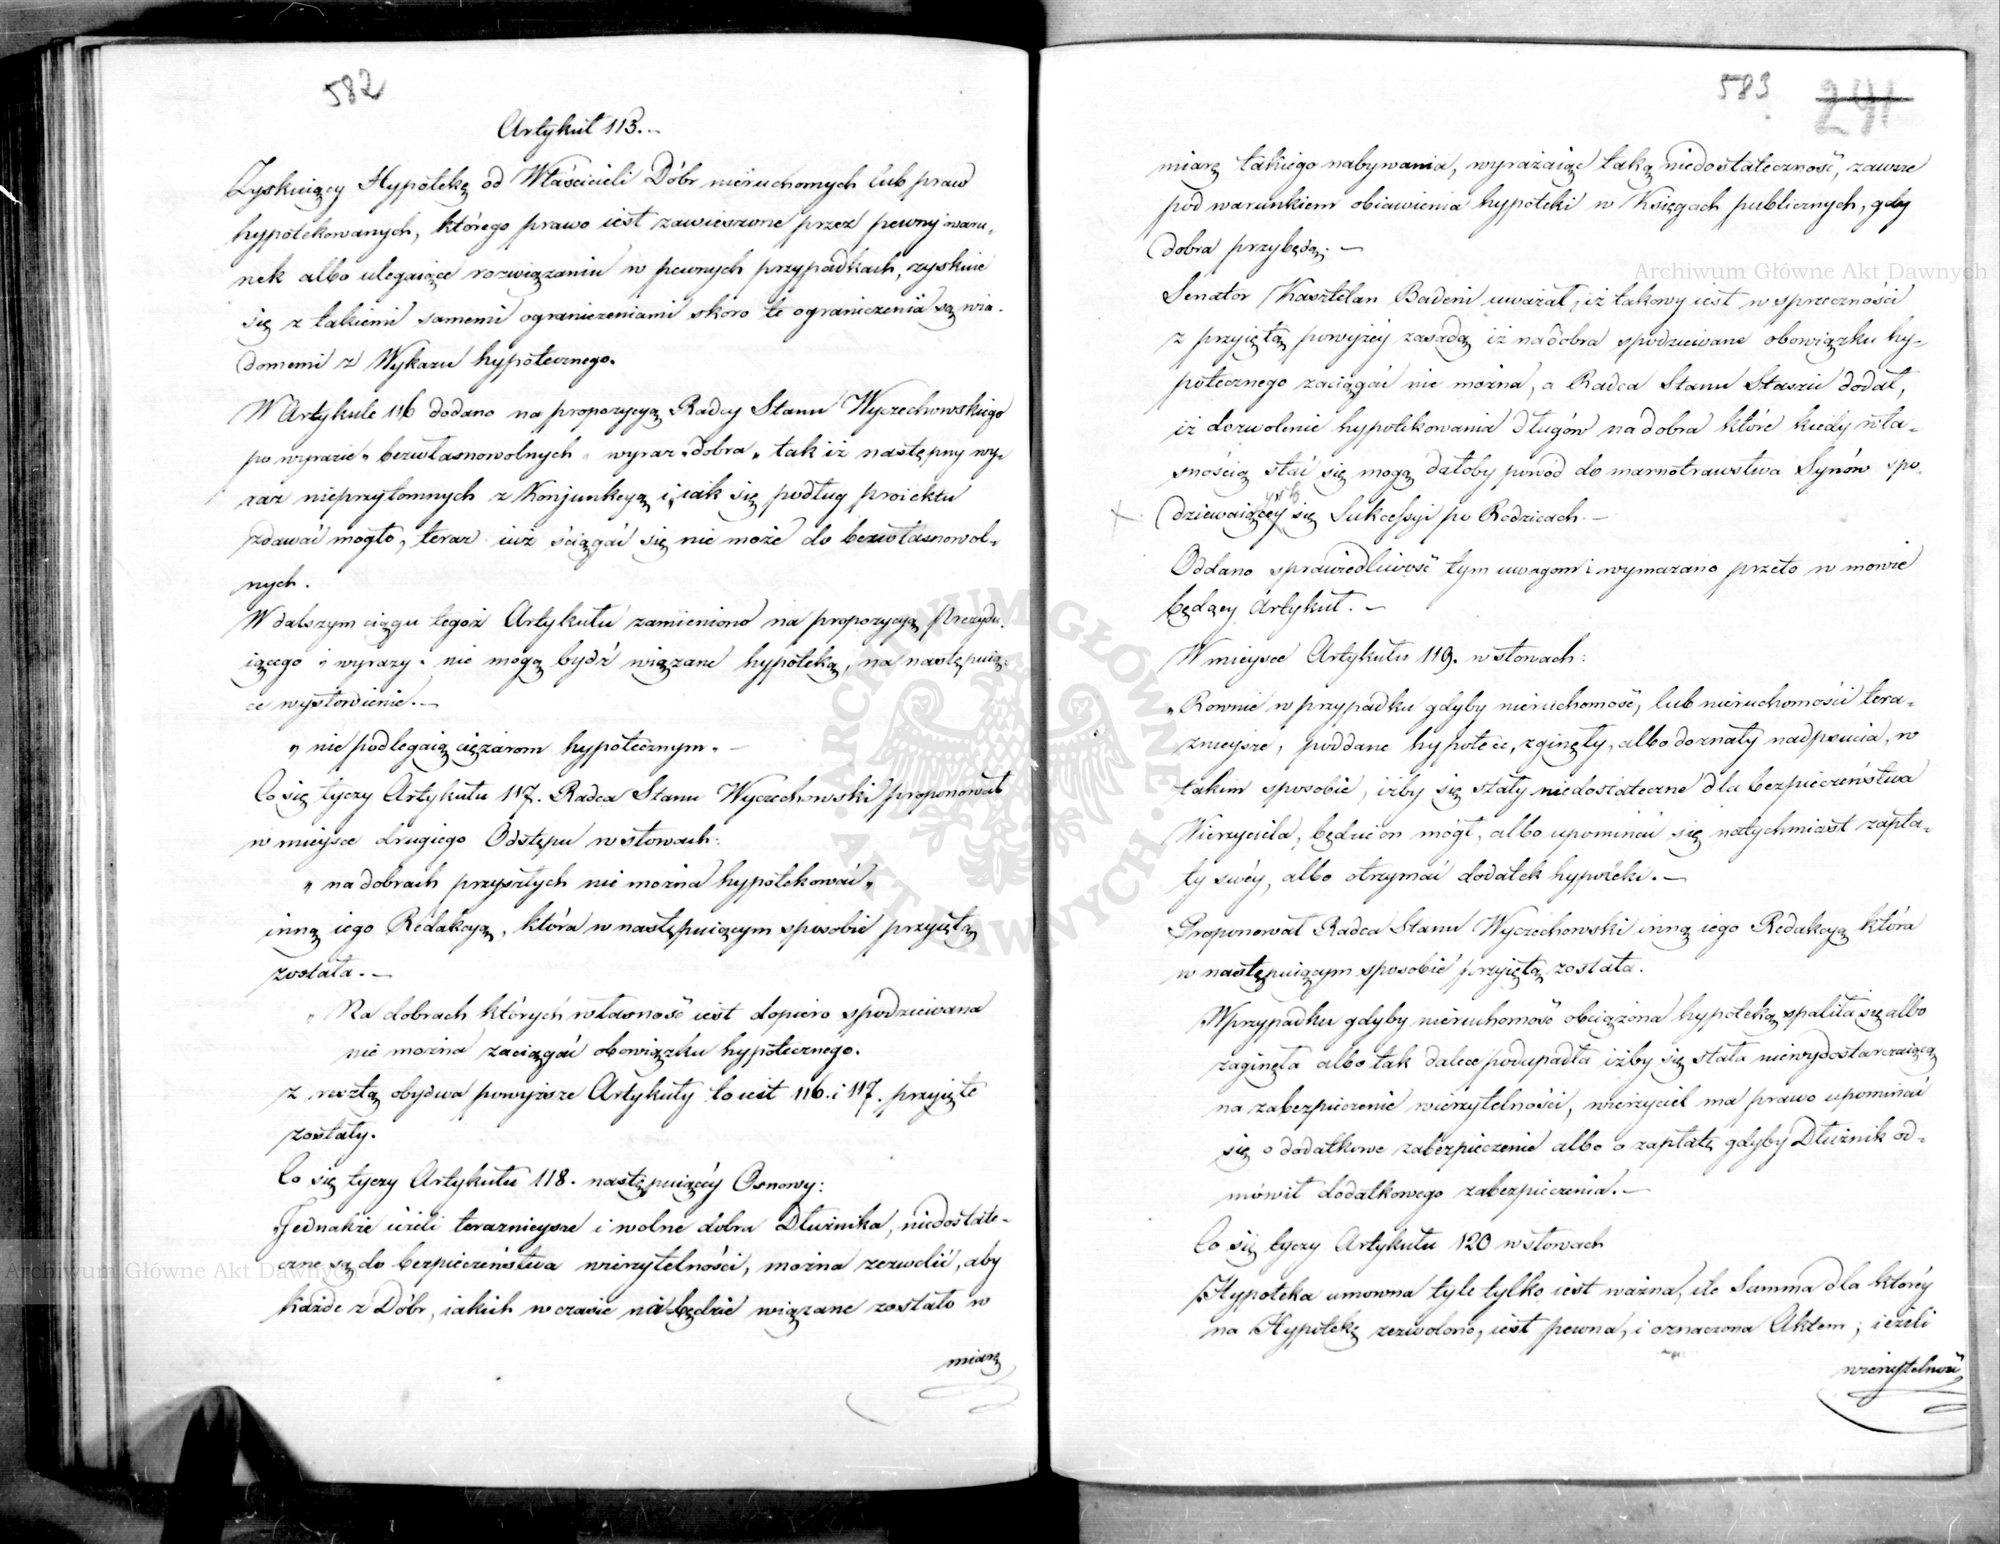 582
Artykuł 113.–
Zyskuiący Hypotekę od Właścicieli Dóbr nieruchomych lub praw
hypotekowanych, którego prawo iest zawieszone przez pewny waru„
nek albo ulegaiące rozwiązaniu w pewnych przypadkach, zyskuie
się z takiemi samemi ograniczeniami skoro te ograniczenia są wia„
domemi z Wykazu hypotecznego.
W Artykule 116 dodano na propozycyą Radcy Stanu Wyczechowskiego
po wyrazie „bezwłasnowolnych„ wyraz „dobra„ tak iż następny wy„
raz nieprzytomnych z Konjunkcyą i, iak się podług proiektu
zdawać mogło, teraz iuż ściągać się nie może do bezwłasnowol„
nych.
W dalszym ciągu tegoż Artykułu zamieniono na propozycyą Prezydu„
iącego „wyrazy„ nie mogą bydź wiązane hypoteką, na następuią„
ce wysłowienie.–
„nie podlegaią ciężarom hypotecznym„–
Co się tyczy Artykułu 117. Radca Stanu Wyczechowski proponował
w mieysce drugiego Odstępu w słowach:
„na dobrach przyszłych nie można hypotekować„
inną iego Redakcyą, która w następuiącym sposobie przyiętą
została.–
„Na dobrach których własność iest dopiero spodziewana
nie można zaciągać obowiązku hypotecznego.
z resztą obydwa powyższe Artykuły to iest 116. i 117. przyięte
zostały.
Co się tyczy Artykułu 118. następuiącéy Osnowy:
„Jednakże ieżeli teraznieysze i wolne dobra Dłużnika, niedostate„
czne są do bezpieczeństwa wierzytelności, można zezwolić, aby
każde z Dóbr, iakich w czasie nabędzie wiązane zostało w
miarę
583
291
miarę takiego nabywania, wyrażaiąc taką niedostateczność, zawsze
pod warunkiem obiawienia hypoteki w Księgach publicznych, gdy
dobra przybędą.–
Senator Kasztelan Badeni uważał, iż takowy iest w sprzeczności
z przyiętą powyżéy zasadą iż na dobra spodziewane obowiązku hy„
potecznego zaciągać nie można, a Radca Stanu Staszic dodał,
iż dozwolenie hypotekowania długów na dobra które kiedy wła„
snością stać się mogą dałoby powód do marnotrawstwa Synów spo„
dziewaiących się Sukcessyi po Rodzicach.–
Oddano sprawiedliwość tym uwagom i wymazano przeto w mowie
będący Artykuł.–
W mieysce Artykułu 119. w słowach:
„Rownie w przypadku gdyby nieruchomość, lub nieruchomości tera„
znieysze, poddane hypotece, zginęły, albo doznały nadpsucia, w
takim sposobie, iżby się stały niedostateczne dla bezpieczeństwa
Wierzyciela, będzie on mógł, albo upominać się natychmiast zapła„
ty swéy, albo otrzymać dodatek hypoteki.–
Proponował Radca Stanu Wyczechowski inną iego Redakcyą która
w następuiącym sposobie przyiętą została.
W przypadku gdyby nieruchomość obciążona hypoteką spaliła się albo
zaginęła albo tak dalece podupadła iżby się stała niewydostarczaiącą
na zabezpieczenie wierzytelności, wierzyciel ma prawo upominać
się o dodatkowe zabezpieczenie albo o zapłatę gdyby Dłużnik od„
mówił dodatkowego zabezpieczenia.–
Co się tyczy Artykułu 120 w słowach
„Hypoteka umowna tyle tylko iest ważna, ile Summa dla któréy
na Hypotekę zezwolono, iest pewna, i oznaczona Aktem; ieżeli
wierzytelność
Archiwum Główne Akt Dawnych
Archiwum Główne Akt Dawnych
ARCHIWUM GŁÓWNE AKT DAWNYCH